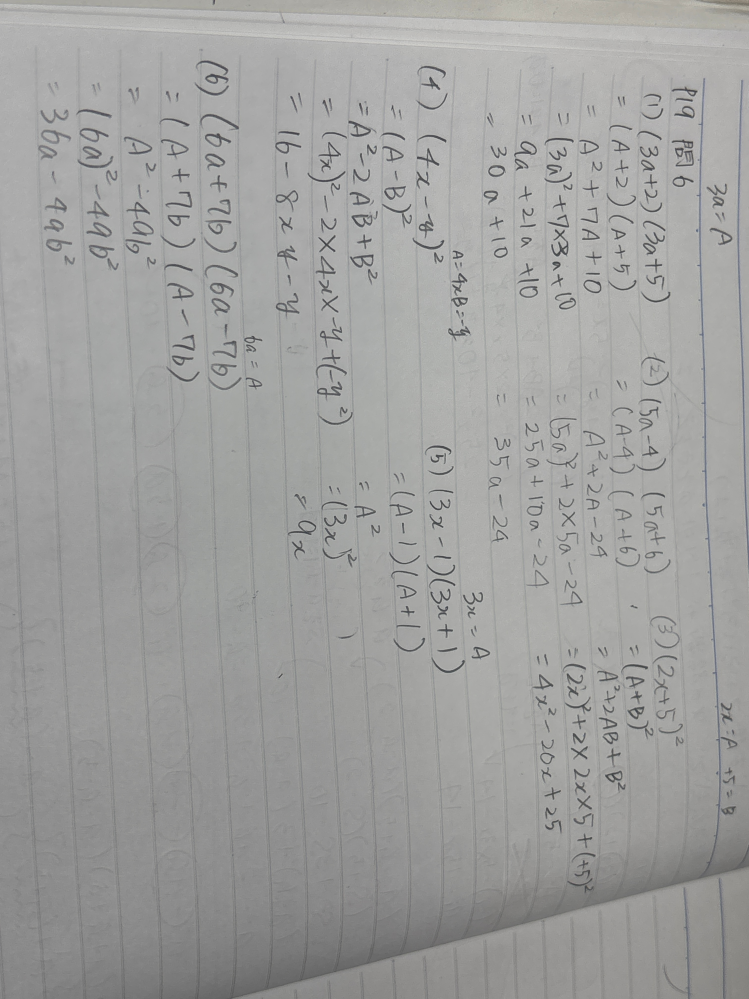 3a=A
2x=A +5=B
P19 問6
(1) (3a+2)(3a+5)
= (A+2)(A+5)
= A²+7A+10
= (3a)²+7×3a+10
= 9a+21a+10
= 30a+10
(2) (5a-4)(5a+6)
= (A-4)(A+6)
= A²+2A-24
= (5a)²+2×5a-24
= 25a+10a-24
= 35a-24
(3) (2x+5)²
= (A+B)²
= A²+2AB+B²
= (2x)²+2×2x×5+(+5)²
= 4x²-20x+25
A=4x B=-y
(4) (4x-y)²
= (A-B)²
= A²-2AB+B²
= (4x)²-2×4x×-y+(-y²)
= 16-8xy-y
3x=A
(5) (3x-1)(3x+1)
= (A-1)(A+1)
= A²
= (3x)²
= 9x
6a=A
(6) (6a+7b)(6a-7b)
= (A+7b)(A-7b)
= A²-49b²
= (6a)²-49b²
= 36a-49b²